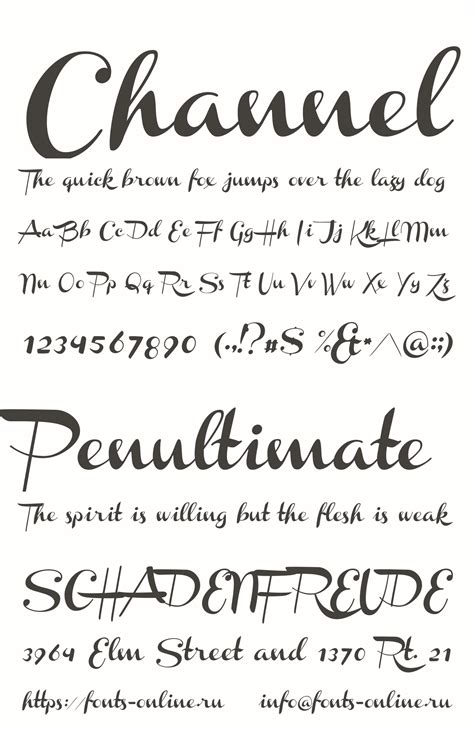 Channel
The quick brown fox jumps over the lazy dog
Aa Bb Cc Dd Ee Ff Gg Hh Ii Jj Kk Ll Mm
Nn Oo Pp Qq Rr Ss Tt Uu Vv Ww Xx Yy Zz
1234567890 (.,!?#S %&*^@:;)
Penultimate
The spirit is willing but the flesh is weak
SCHADENFREUDE
3964 Elm Street and 1370 Rt. 21
https://fonts-online.ru info@fonts-online.ru